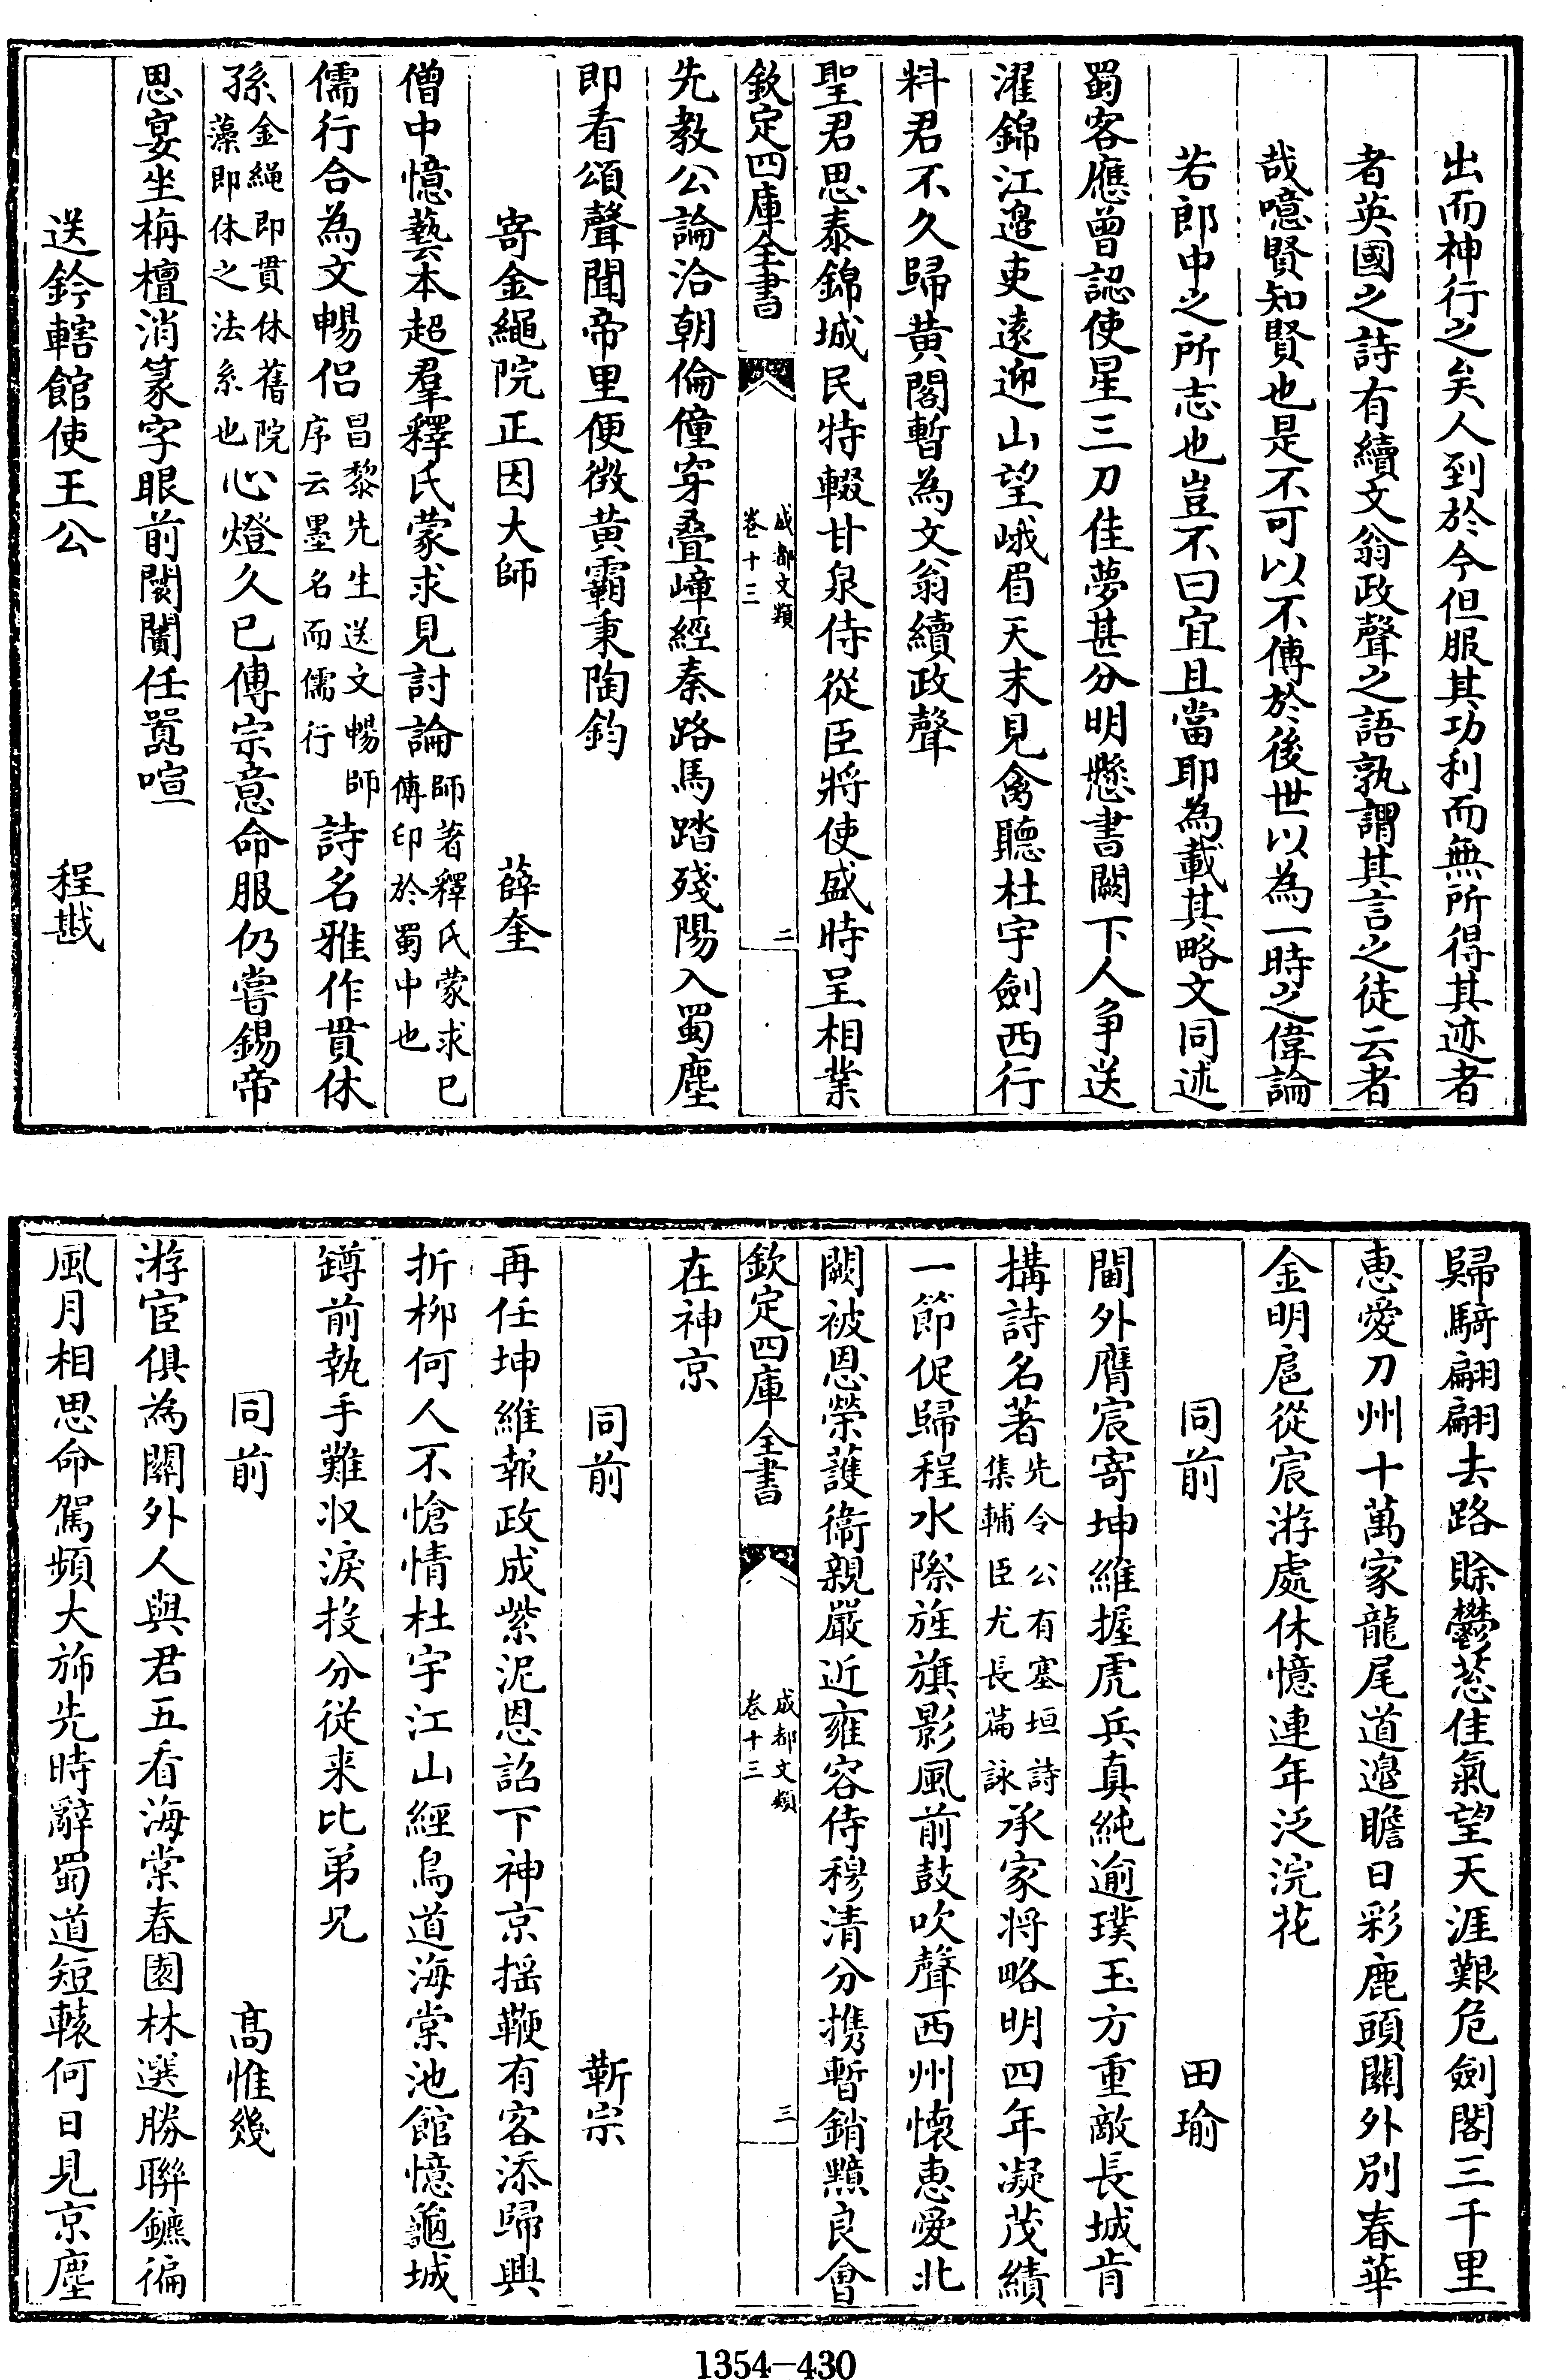 出而神行之矣人到於今但服其功利而無所得其迹者
者英國之詩有續文翁政聲之語孰謂其言之徒云者
哉噫賢知賢也是不可以不傳於後世以為一時之偉論
若郎中之所志也豈不曰宜且當耶為載其略文同述
蜀客應曾認使星三刀佳夢甚分明懸書闕下人争送
濯錦江邉吏遠迎山望峨眉天末見禽聽杜宇劍西行
料君不久歸黄閣暫為文翁續政聲
聖君思泰錦城民特輟甘泉侍從臣將使盛時呈相業
欽定四庫全書
成都文類
卷十三
二
先教公論洽朝倫僮穿叠嶂經秦路馬踏殘陽入蜀塵
即看頌聲聞帝里便徴黄霸秉陶鈞
寄金繩院正因大師 薛奎
僧中憶藝本超羣釋氏蒙求見討論師著釋氏蒙求已傳印於蜀中也
儒行合為文暢侣昌黎先生送文暢師序云墨名而儒行詩名雅作貫休
孫金繩即貫休舊院藻即休之法系也心燈久已傳宗意命服仍嘗錫帝
恩宴坐栴檀消篆字眼前闤闠任囂喧
送鈐轄館使王公 程戡
歸騎翩翩去路賒鬱葱佳氣望天涯艱危劍閣三千里
恵愛刀州十萬家龍尾道邉瞻日彩鹿頭關外別春華
金明扈從宸游處休憶連年泛浣花
同前 田瑜
閫外膺宸寄坤維握虎兵真純逾璞玉方重敵長城肯
搆詩名著先令公有塞垣詩集輔臣尤長篇詠承家将略明四年凝茂績
一節促歸程水際旌旗影風前鼓吹聲西州懐恵愛北
闕被恩榮護衞親嚴近雍容侍穆清分攜暫銷黯良會
欽定四庫全書
成都文類
卷十三
三
在神京
同前 靳宗
再任坤維報政成紫泥恩詔下神京揺鞭有客添歸興
折柳何人不愴情杜宇江山經鳥道海棠池館憶龜城
罇前執手難収淚投分從来比弟兄
同前 髙惟幾
游宦俱為關外人與君五看海棠春園林選勝聯鑣徧
風月相思命駕頻大斾先時辭蜀道短轅何日見京塵
1354—430